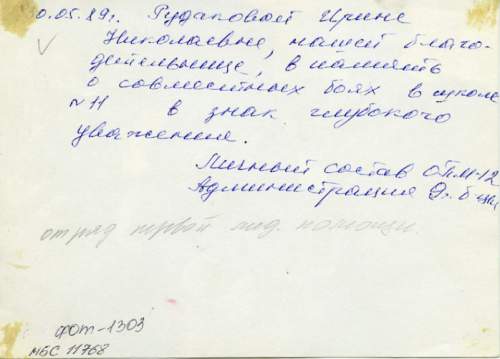 0.05.89г. Рудаковой Ирине
Николаевне, нашей благо-
детельнице, в память
о совместных боях в школе
№ 11 в знак глубокого
уважения.
Личный состав ОПМ-12
Администрация
отряд первой мед. помощи.
фот-1303
МБС 11768